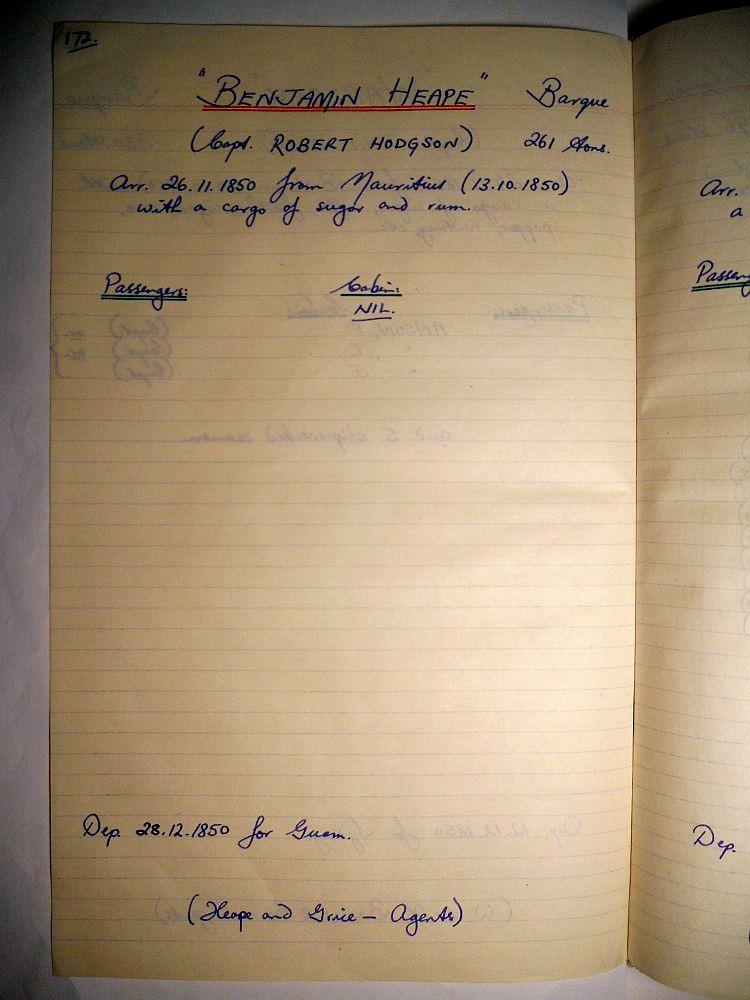 172.
"BENJAMIN HEAPE" Barque
(Capt. ROBERT HODGSON) 261 tons.
Arr. 26.11.1850 from Mauritius (13.10.1850)
with a cargo of sugar and rum.
Passengers: Cabin:
NIL.
Dep. 28.12.1850 for Guam.
(Heape and Grice — Agents)
Arr.
a
Passeng
Dep.